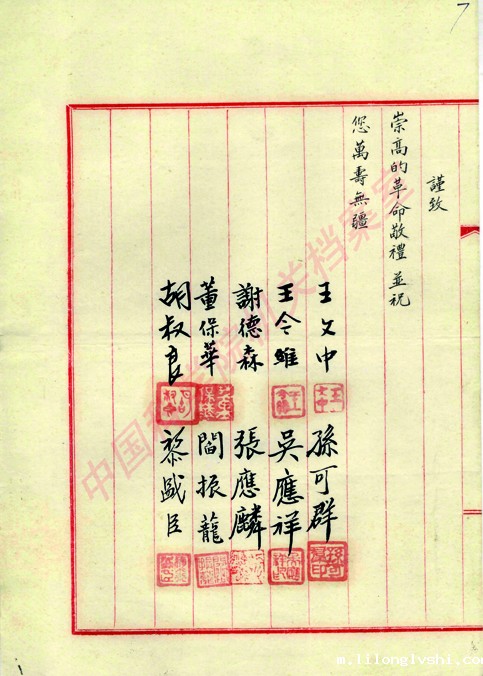 7
謹致
崇高的革命敬禮 並祝
您萬壽無疆
王文中 孫可群
王令雖 吳應祥
謝德森 張應麟
董保華 閻振龍
胡叔良 黎盛臣
中国科学院机关档案室
m.lilonglvshi.com